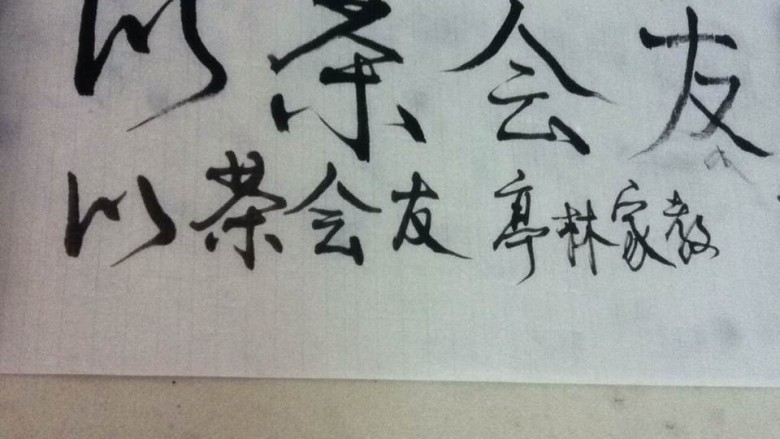 以茶会友
以茶会友 亭林家教